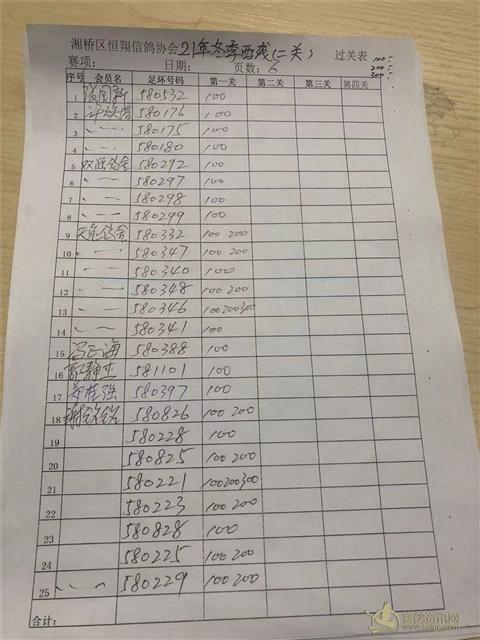 湘桥区恒翔信鸽协会21年冬季西线(二关) 过关表
赛项: 日期: 页数: 6 100 200 300
序号 会员名 足环号码 第一关 第二关 第三关 第四关
1 580532 100
2 580176 100
3 580175 100
4 580180 100
5 鸽舍 580292 100
6 580297 100
7 580298 100
8 580299 100
9 鸽舍 580332 100 200
10 580347 100 200
11 580340 100
12 580348 100 200
13 580346 100 200 300
14 580341 100
15 580388 100
16 581101 100
17 580397 100
18 580826 100 200
19 580228 100
20 580825 100 200
21 580221 100 200 300
22 580223 100 200
23 580828 100
24 580225 100 200
25 580229 100 200
合计:
赛鸽资讯网